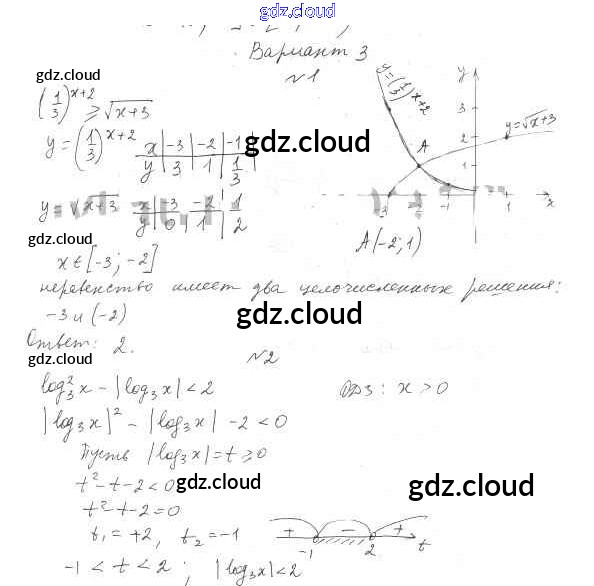 gdz.cloud
Вариант 3
№1
gdz.cloud
(1/3)^(x+2) ≥ √(x+3)
y = (1/3)^(x+2)
x | -3 | -2 | -1 |
y | 3 | 1 | 1/3
gdz.cloud
y = √(x+3)
x | -3 | -2 | 1
y | 0 | 1 | 2
gdz.cloud
y = (1/3)^(x+2)
y
3
2
1
A
y = √(x+3)
-3 -2 -1 1 x
A(-2; 1)
x ∈ [-3; -2]
неравенство имеет два целочисленных решения:
-3 и (-2)
gdz.cloud
Ответ: 2.
gdz.cloud
№2
log₃²x - |log₃x| < 2
ОДЗ: x > 0
|log₃x|² - |log₃x| - 2 < 0
Пусть |log₃x| = t ≥ 0
t² - t - 2 < 0
gdz.cloud
gdz.cloud
t² - t - 2 = 0
t₁ = +2, t₂ = -1
+ - +
-1 2 t
-1 < t < 2; |log₃x| < 2